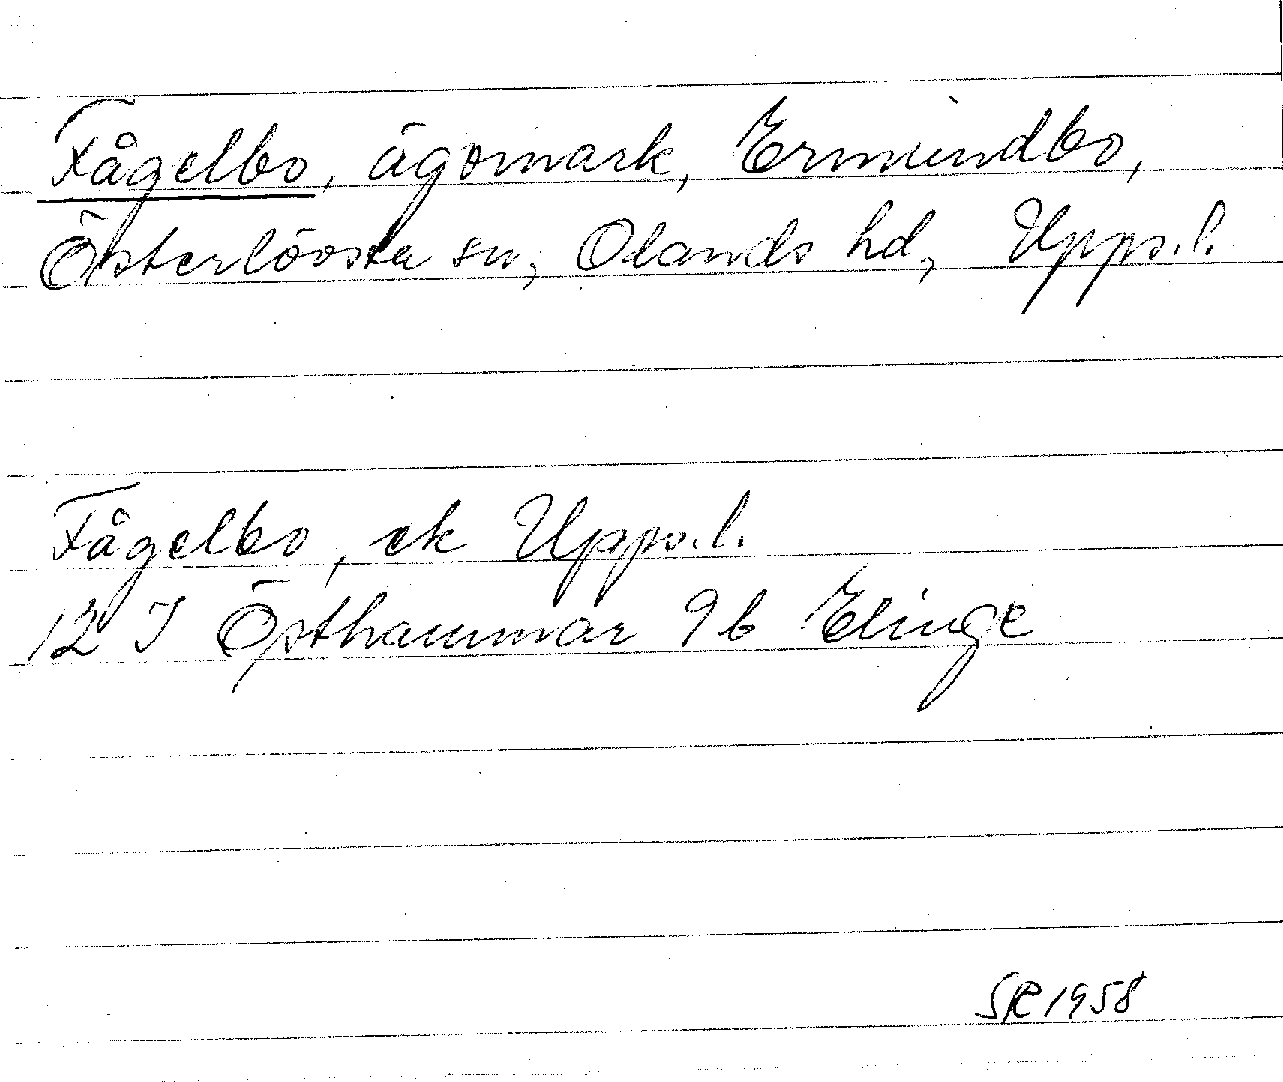 Fågelbo, ägomark, Ermundbo,
Österlövsta sn, Olands hd, Upps.l.
Fågelbo, ek Upps.l.
12 I Östhammar 9b Elinge
SR 1958